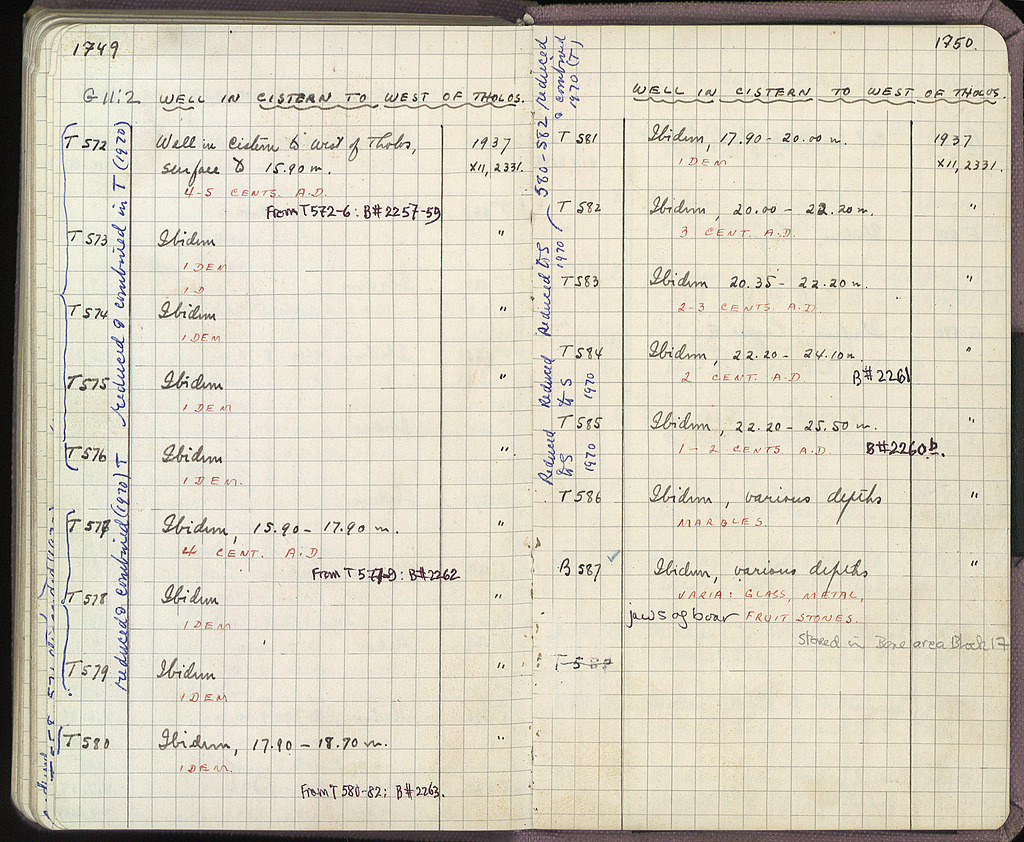 1749
G 11:2 WELL IN CISTERN TO WEST OF THOLOS.
T 572 Well in cistern to west of Tholos, 1937
surface to 15.90 m. XII, 2331.
4-5 CENTS. A.D.
From T 572-6: B#2257-59
T 573 Ibidem "
IDEM
ID
T 574 Ibidem "
IDEM
T 575 Ibidem "
IDEM
T 576 Ibidem "
IDEM.
T 577 Ibidem, 15.90 - 17.90 m. "
4 CENT. A.D.
From T 577-9: B#2262
T 578 Ibidem "
IDEM
T 579 Ibidem "
IDEM
T 580 Ibidem, 17.90 - 18.70 m. "
IDEM.
From T 580-82: B#2263.
reduced & combined in T (1970)
reduced & combined (1970) T
1750.
WELL IN CISTERN TO WEST OF THOLOS.
T 581 Ibidem, 17.90 - 20.00 m. 1937
IDEM XII, 2331.
T 582 Ibidem, 20.00 - 22.20 m. "
3 CENT. A.D.
T 583 Ibidem 20.35 - 22.20 m. "
2-3 CENTS. A.D.
T 584 Ibidem, 22.20 - 24.10 m. "
2 CENT. A.D. B#2261
T 585 Ibidem, 22.20 - 25.50 m. "
1-2 CENTS. A.D. B#2260b.
T 586 Ibidem, various depths "
MARBLES.
B 587 Ibidem, various depths "
VARIA: GLASS, METAL,
jaws of boar FRUIT STONES.
stored in Bone area Block 17
T 588
580-582 reduced
& combined
1970 (T)
Reduced to S
1970
Reduced
to S
1970
Reduced
to S
1970